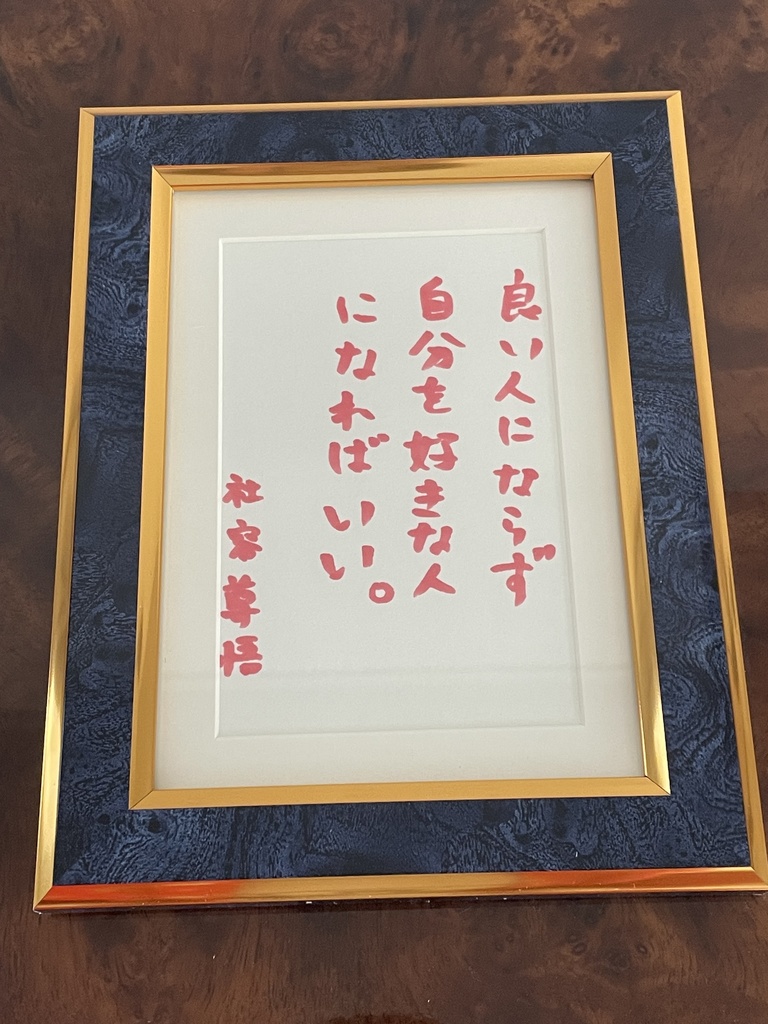 良い人にならず
自分を好きな人
になればいい。
社家尊悟